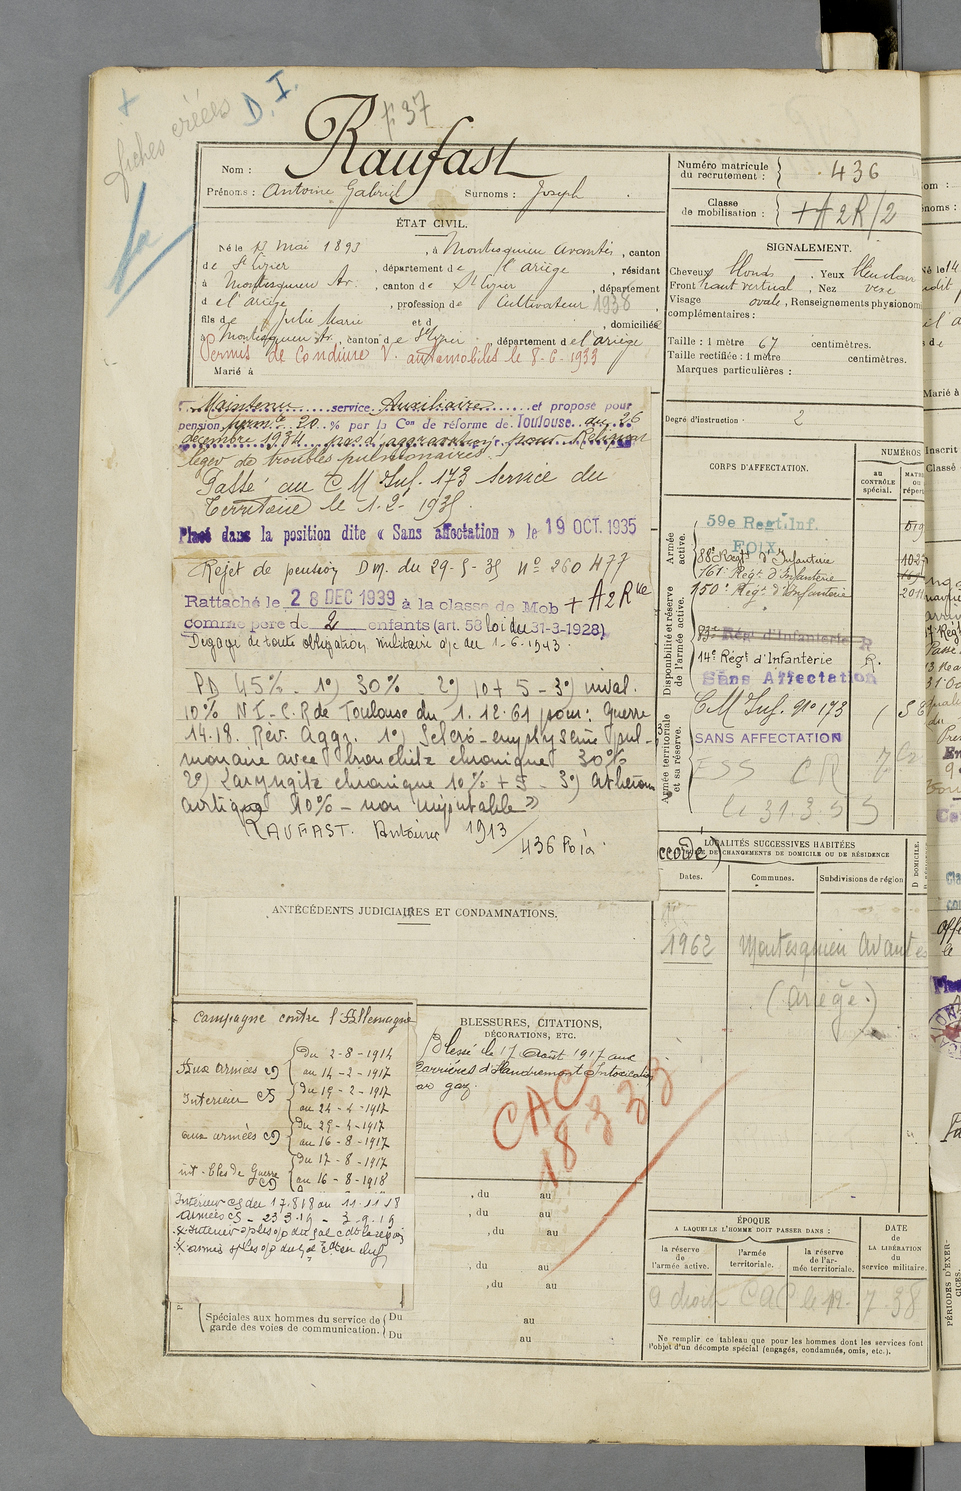 fiches créées D.I.
p 37
Raufast
Nom :
Prénoms : Antoine Gabriel Surnoms : Joseph
ÉTAT CIVIL.
Né le 13 mai 1893, à Montesquieu Avantès, canton
de St Lizier, département de l'ariège, résidant
à Montesquieu Av., canton de St Lizier, département
de l'ariège, profession de Cultivateur 1938
fils de Julie Marie et d , domiciliés
à Montesquieu Av., canton de St Lizier, département de l'ariège
Permis de Conduire V. automobiles le 8-6-1933
Marié à
Maintenu service Auxiliaire et proposé pour
pension perm.te 20 % par la Con de réforme de Toulouse du 26
décembre 1934 pas d'aggravation pour Reliquat
léger de troubles pulmonaires.
Passé au C M Inf. 173 service du
Territoire le 1-2-1935.
Placé dans la position dite « Sans affectation » le 19 OCT. 1935
Rejet de pension D.M. du 29-5-35 No 260 477
Rattaché le 28 DEC 1939 à la classe de Mob + A2Rue
comme père de 2 enfants (art. 58 loi du 31-3-1928)
Dégagé de toute obligation militaire à/c du 1-6-1943.
PD 45% - 1°) 30% - 2°) 10 + 5 - 3°) inval.
10% N I - C.R de Toulouse du 1.12.61 pour : guerre
14.18. Rév. Aggr. 1°) Scléro-emphysème pul-
monaire avec bronchite chronique 30%
2°) Laryngite chronique 10% + 5 - 3°) Athérom
aortique 10% - non imputable »
RAUFAST. Antoine 1913/436 Foix
ANTÉCÉDENTS JUDICIAIRES ET CONDAMNATIONS.
Campagne contre l'Allemagne
Aux armées CD { du 2-8-1914
au 14-2-1917
Intérieur CS { du 15-2-1917
au 24-4-1917
aux armées CD { du 25-4-1917
au 16-8-1917
int. bles de Guerre CD { du 17-8-1917
au 16-8-1918
Intérieur CS du 17.8.18 au 11.11.18
Armées CS - 23.3.19 - 3.9.19
Spéciales aux hommes du service de garde des voies de communication. { Du au
Du au
BLESSURES, CITATIONS,
DÉCORATIONS, ETC.
Blessé le 17 Août 1917 aux
Carrières d'Haudromont Intoxication
par gaz.
CAC
18333
, du au
, du au
, du au
, du au
, du au
Numéro matricule
du recrutement : } 436
Classe
de mobilisation : } + A2R/2
SIGNALEMENT.
Cheveux blonds. Yeux bleu clair
Front haut vertical, Nez vexe
Visage ovale, Renseignements physionom
complémentaires :
Taille : 1 mètre 67 centimètres.
Taille rectifiée : 1 mètre centimètres.
Marques particulières :
Degré d'instruction : 2
CORPS D'AFFECTATION.
NUMÉROS
au
CONTRÔLE
spécial.
Armée
active.
59e Regt. Inf.
FOIX
88e Régt d'Infanterie
161e Régt d'Infanterie
150e Régt d'Infanterie
Disponibilité et réserve
de l'armée active.
83e Rég d'Infanterie R
14e Régt d'Infanterie R.
Sans Affectation
Armée territoriale
et sa réserve.
C M Inf. No 173
SANS AFFECTATION
ESS CR
le 31.3.55
LOCALITÉS SUCCESSIVES HABITÉES
PAR SUITE DE CHANGEMENTS DE DOMICILE OU DE RÉSIDENCE
Dates. Communes. Subdivisions de région
D DOMICILE.
1962 Montesquieu Avantès
(Ariège.)
ÉPOQUE
A LAQUELLE L'HOMME DOIT PASSER DANS :
DATE
DE
LA LIBÉRATION
du
service militaire.
la réserve
de
l'armée active.
l'armée
territoriale.
la réserve
de l'ar-
mée territoriale.
a droit CAC le 12. 7 38
Ne remplir ce tableau que pour les hommes dont les services font
l'objet d'un décompte spécial (engagés, condamnés, omis, etc.).
PÉRIODES D'EXER-
CICES.